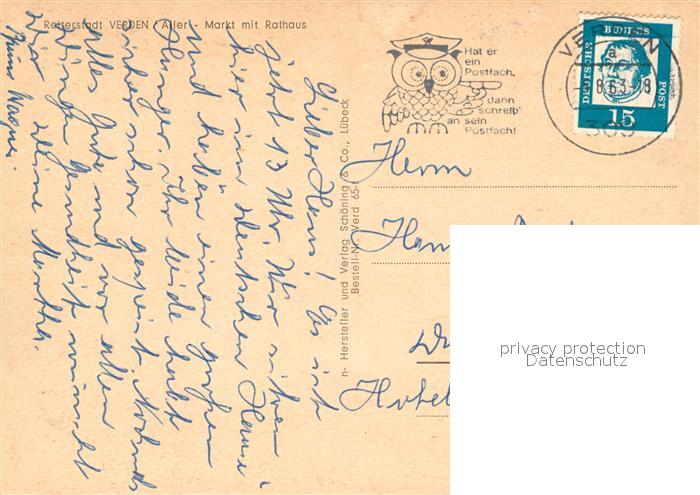 Reiterstadt VERDEN / Aller - Markt mit Rathaus
Hat er
ein
Postfach,
dann
schreib'
an sein
Postfach!
VERDEN
a
8.6.63-18
309
DEUTSCHE BUNDESPOST
15
n- Hersteller und Verlag Schöning & Co., Lübeck
Bestell-Nr. Verd 65
Lieber Hans! Es ist
jetzt 13 Uhr. Wir sitzen
hier im Deutschen Hause
und haben einen großen
Hunger. Ihr beide habt
sicher schon gespeist. Nochmals
alles Gute und vor allen
Dingen Gesundheit wünscht
Dir Deine Martha.
Herrn
Han
Hotel
privacy protection
Datenschutz